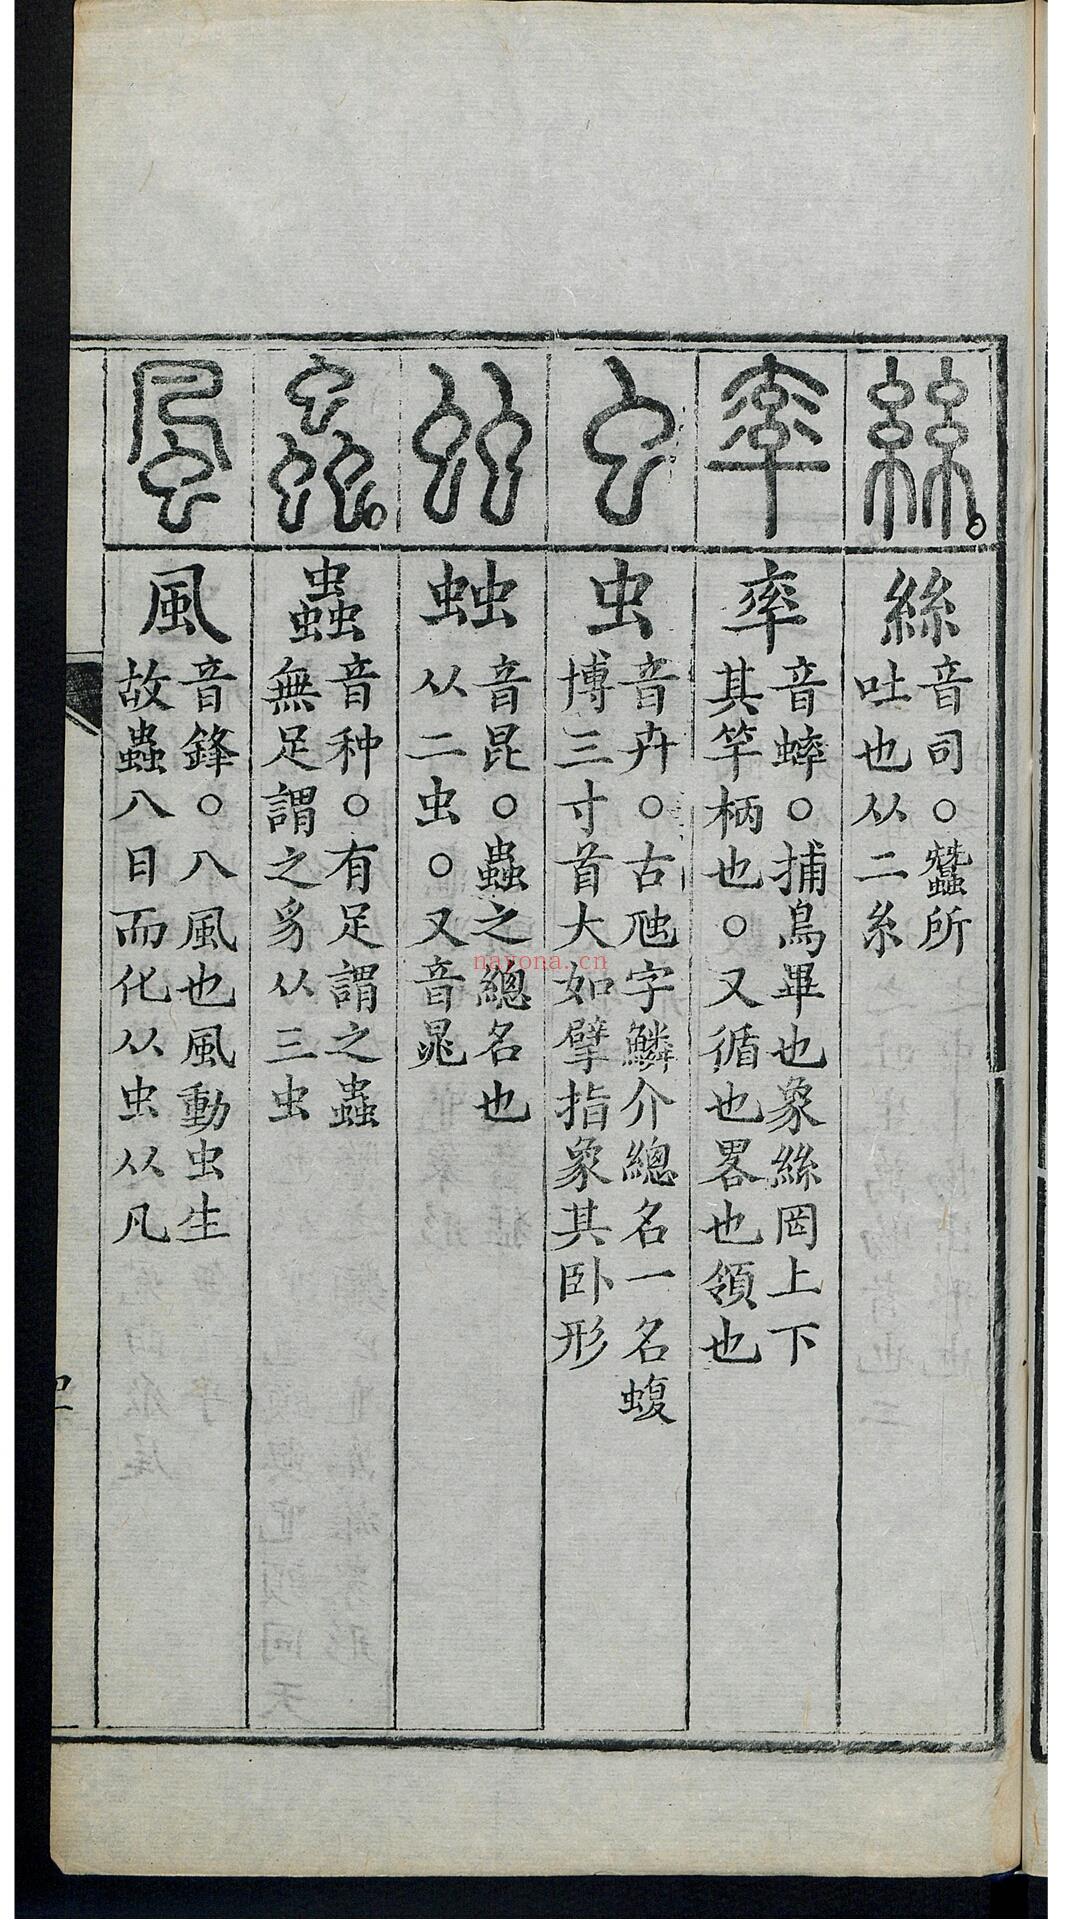 絲
音司○蠶所
吐也从二糸
率
音蟀○捕鳥畢也象絲罔上下
其竿柄也○又循也畧也領也
虫
音卉○古虺字鱗介總名一名蝮
博三寸首大如擘指象其卧形
䖵
音昆○蟲之總名也
从二虫○又音晁
蟲
音种○有足謂之蟲
無足謂之豸从三虫
風
音鋒○八風也風動虫生
故蟲八日而化从虫从凡
nayona.cn